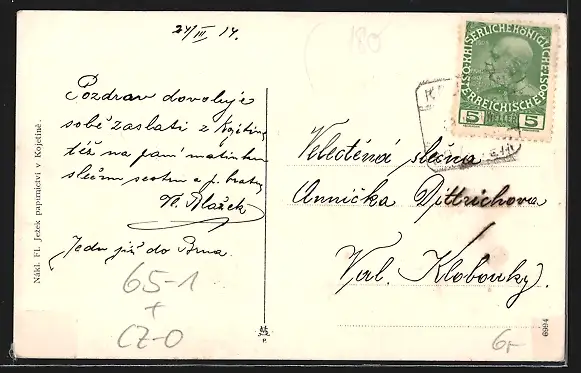 24/III 14.
180
Pozdrav dovoluje
sobě zaslati z Kojetína
též na paní matinku
slečnu sestru a p. bratra
Vl. Blažek
Jedu již do Brna.
65-1
+
CZ-0
Nákl. Fl. Ježek papírnictví v Kojetíně.
KAISERLICHE KÖNIGLICHE
ÖSTERREICHISCHE
5 HELLER 5
Velectěná slečna
Annička Dittrichova
Val. Klobouky.
6994
6,-